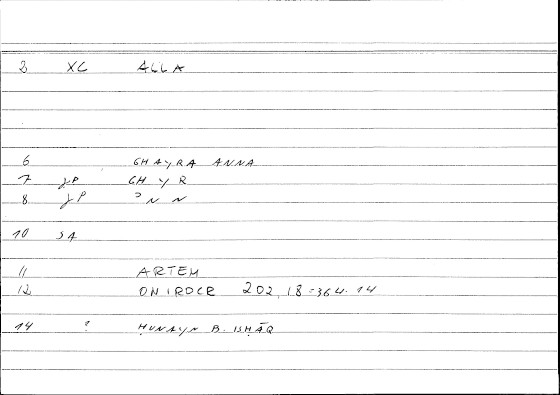 2 XC ALLA
6 GHAYRA ANNA
7 JP GH Y R
8 JP ʾN N
10 SA
11 ARTEM
12 ONIROCR 202,18=364.14
14 ? ḤUNAYN B. ISḤĀQ